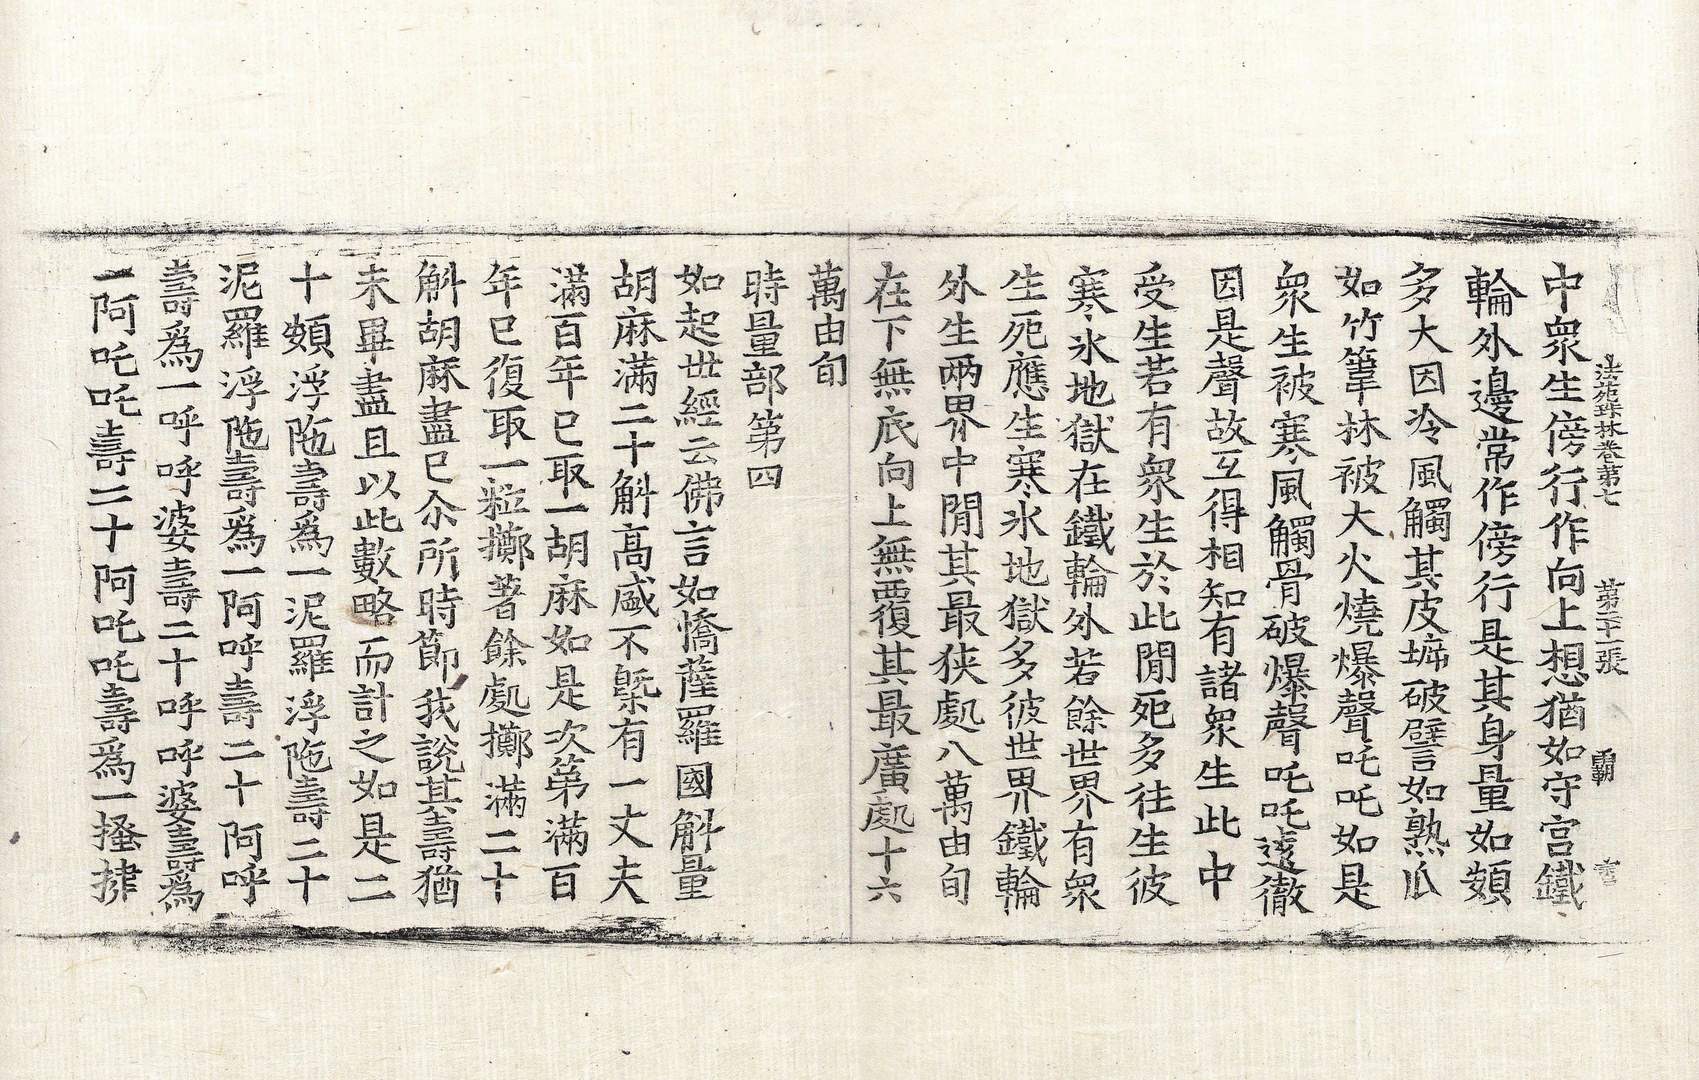 法苑珠林卷第七 第二十一張 霸
中衆生傍行作向上想猶如守宫鐵
輪外邊常作傍行是其身量如頞
多大因冷風觸其皮㙛破譬如熟瓜
如竹䈽林被大火燒爆聲吒吒如是
衆生被寒風觸骨破爆聲吒吒遠徹
因是聲故互得相知有諸衆生此中
受生若有衆生於此閒死多往生彼
寒氷地獄在鐵輪外若餘世界有衆
生死應生寒氷地獄多彼世界鐵輪
外生兩界中閒其最狹處八萬由旬
在下無底向上無覆其最廣處十六
萬由旬
時量部第四
如起世經云佛言如憍薩羅國斛量
胡麻滿二十斛高盛不槩有一丈夫
滿百年已取一胡麻如是次第滿百
年已復取一粒擲著餘處擲滿二十
斛胡麻盡已尒所時節我說其壽猶
未畢盡且以此數略而計之如是二
十頞浮陁壽爲一泥羅浮陁壽二十
泥羅浮陁壽爲一阿呼壽二十阿呼
壽爲一呼呼婆壽二十呼呼婆壽爲
一阿吒吒壽二十阿吒吒壽爲一搔揵